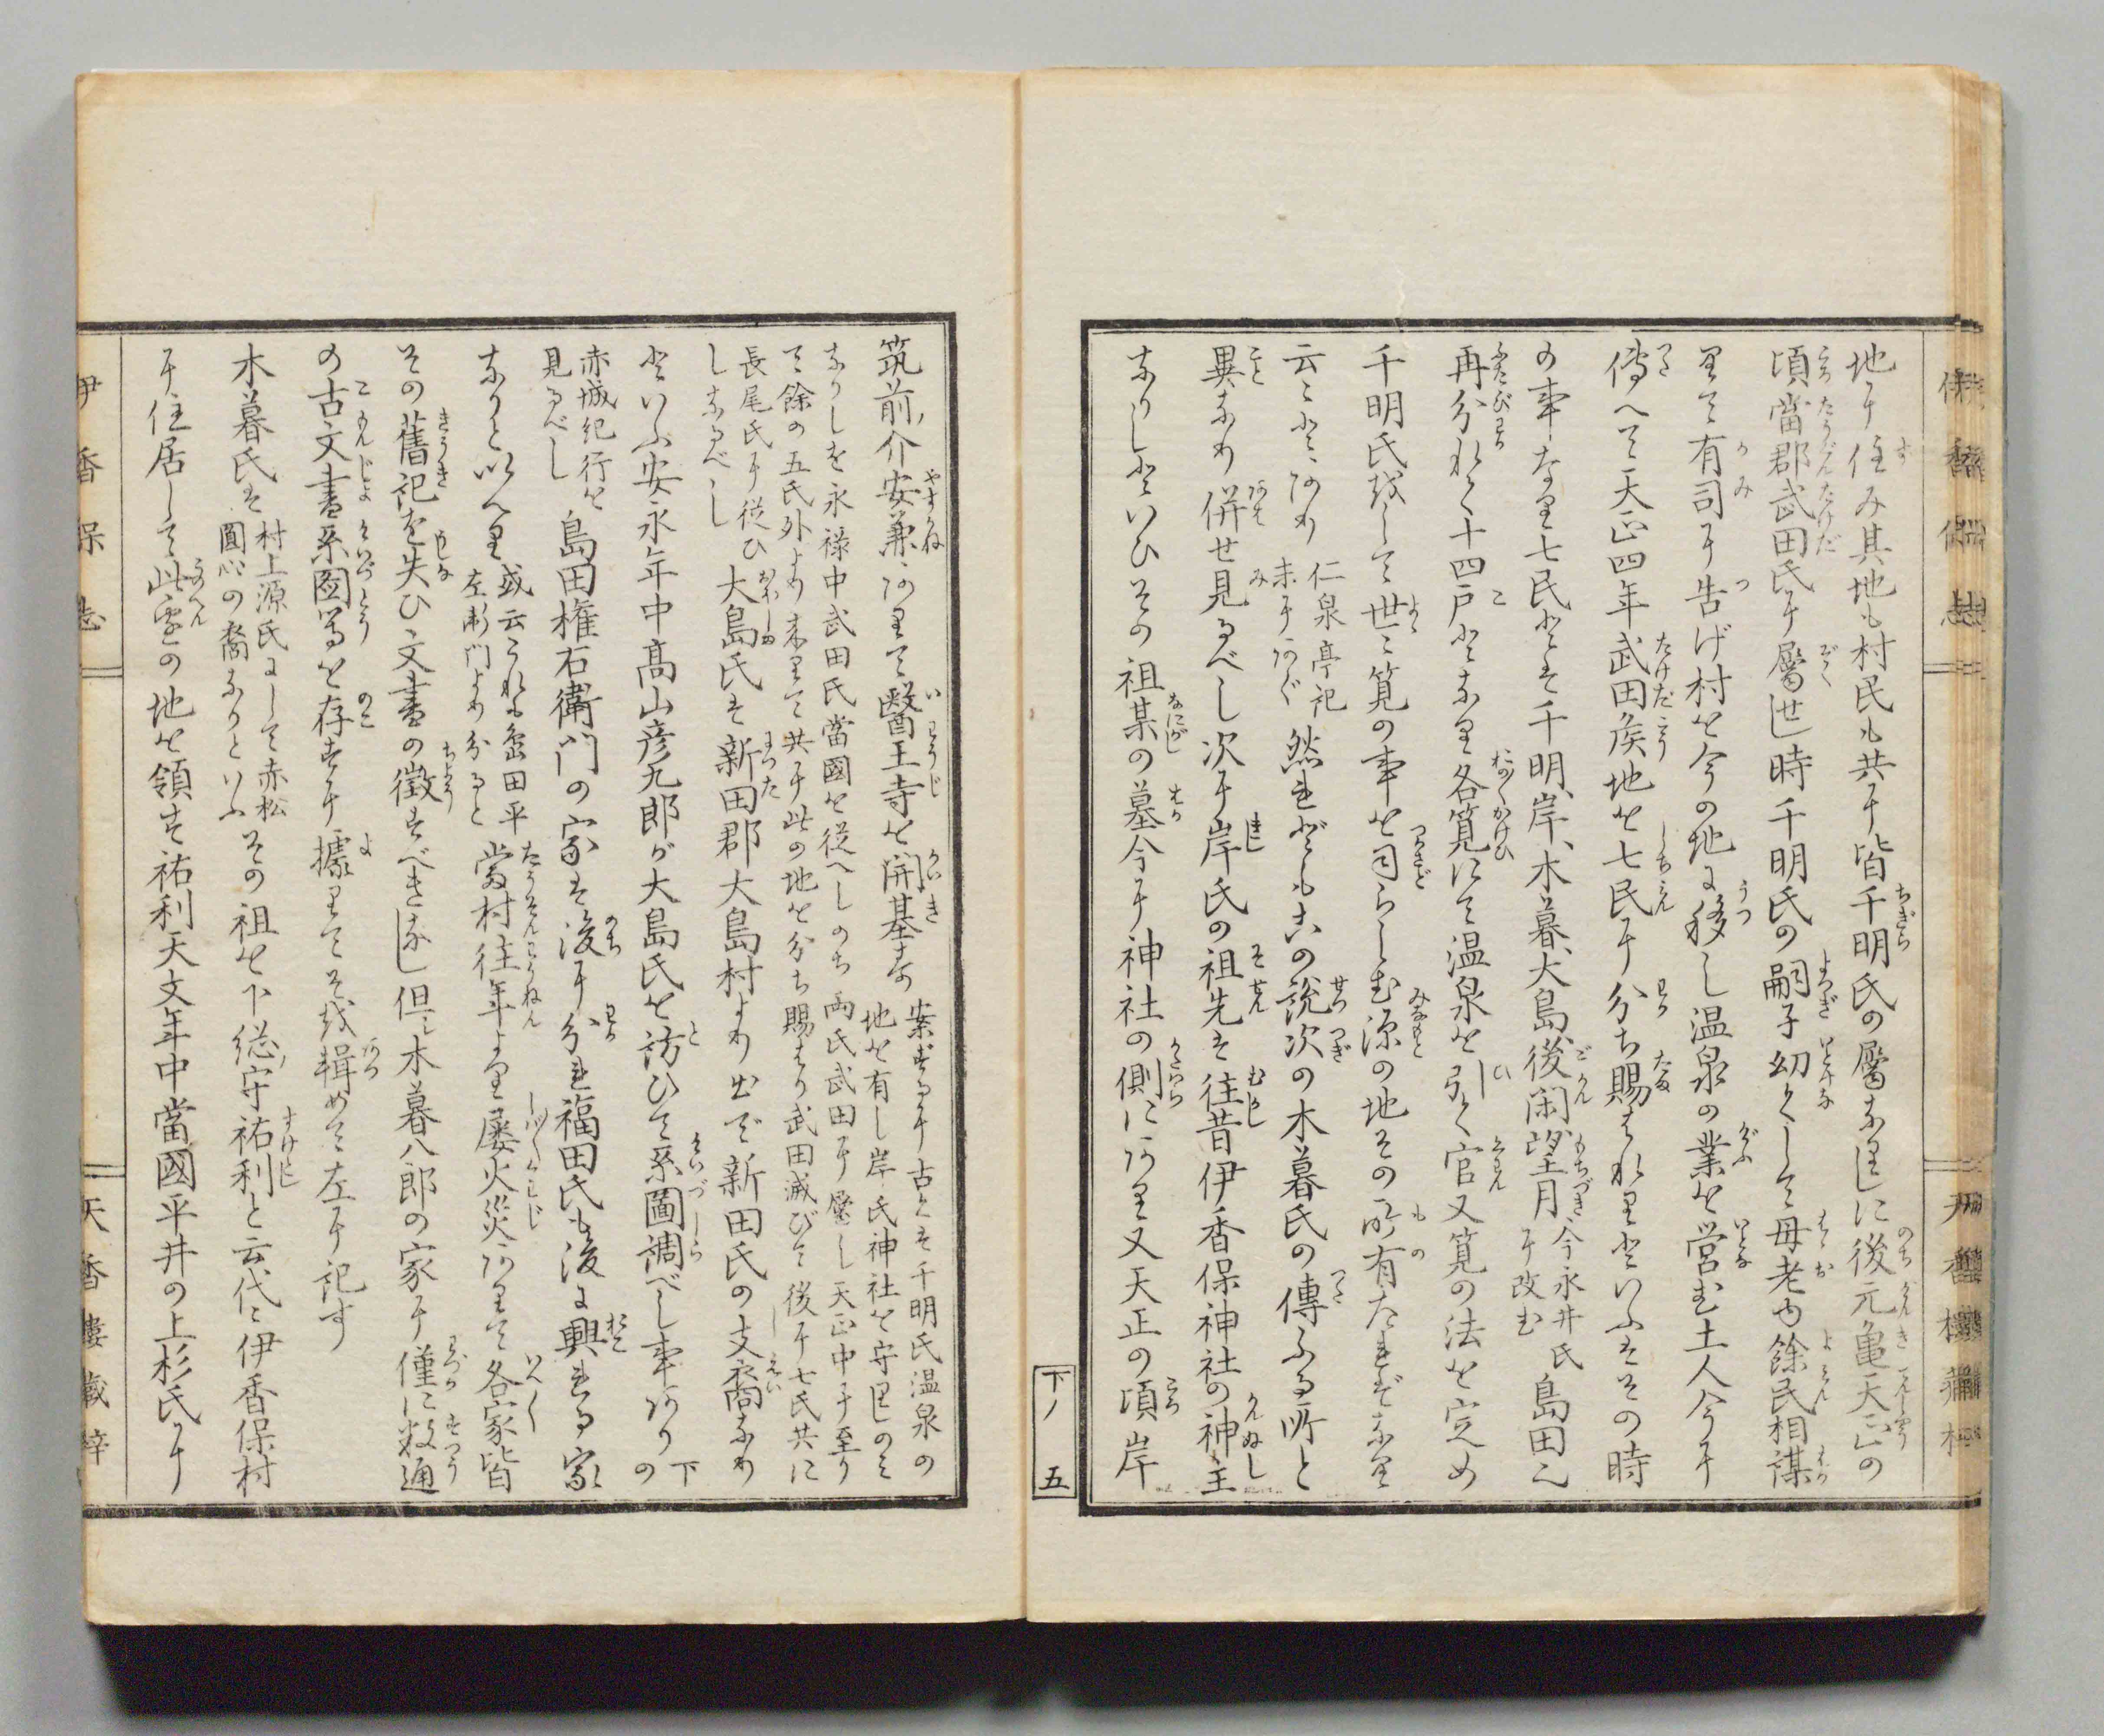 地に住み其地も村民も共に皆千明氏の屬なりしに後元亀天正の
頃當郡武田氏に屬せし時千明氏の嗣子幼くして母老ゆ餘民相謀
りて有司に告げ村を今の地に移し温泉の業を営む土人今に
傳へて天正四年武田侯地を七民に分ち賜はれりといふはその時
の事なり七民とは千明、岸、木暮、大島、後閑、望月、今永井氏に改む島田也
再分れて十四戸となり各筧にて温泉を引く官又筧の法を定め
千明氏をして世〻筧の事を司らしむ源の地その所有たればなり
云〻とあり仁泉亭記末にあぐ然れども古の説次の木暮氏の傳ふる所と
異なり併せ見るべし次に岸氏の祖先は往昔伊香保神社の神主
なりしといひその祖某の墓今に神社の側にあり又天正の頃岸
下ノ五
筑前ノ介安兼ありて醫王寺を開基す案ずるに古くは千明氏温泉の
地を有し岸氏神社を守りしのみ
なりしを永禄中武田氏當國を従へしのち両氏武田に屬し天正中に至り
て餘の五氏外より来りて共に此の地を分ち賜はり武田滅びて後に七氏共に
長尾氏に従ひ
しなるべし
大島氏は新田郡大島村より出で新田氏の支裔なり
といふ安永年中髙山彦九郎が大島氏を訪ひて系圖調べし事あり下の
赤城紀行を
見るべし
島田権右衛門の家は後に分れ福田氏も後に興れる家
なりと以へり或云これも島田平
左衛門より分ると
當村往年より屡火災ありて各家皆
その舊記を失ひ文書の徴すべきなし但〻木暮八郎の家に僅に数通
の古文書系圖等を存すに據りてそを輯めて左に記す
木暮氏は村上源氏にして赤松
圓心の裔なりといふ
その祖を下総ノ守祐利と云代〻伊香保村
に住居して此邊の地を領す祐利天文年中當國平井の上杉氏に
伊香保志
天香樓蔵梓